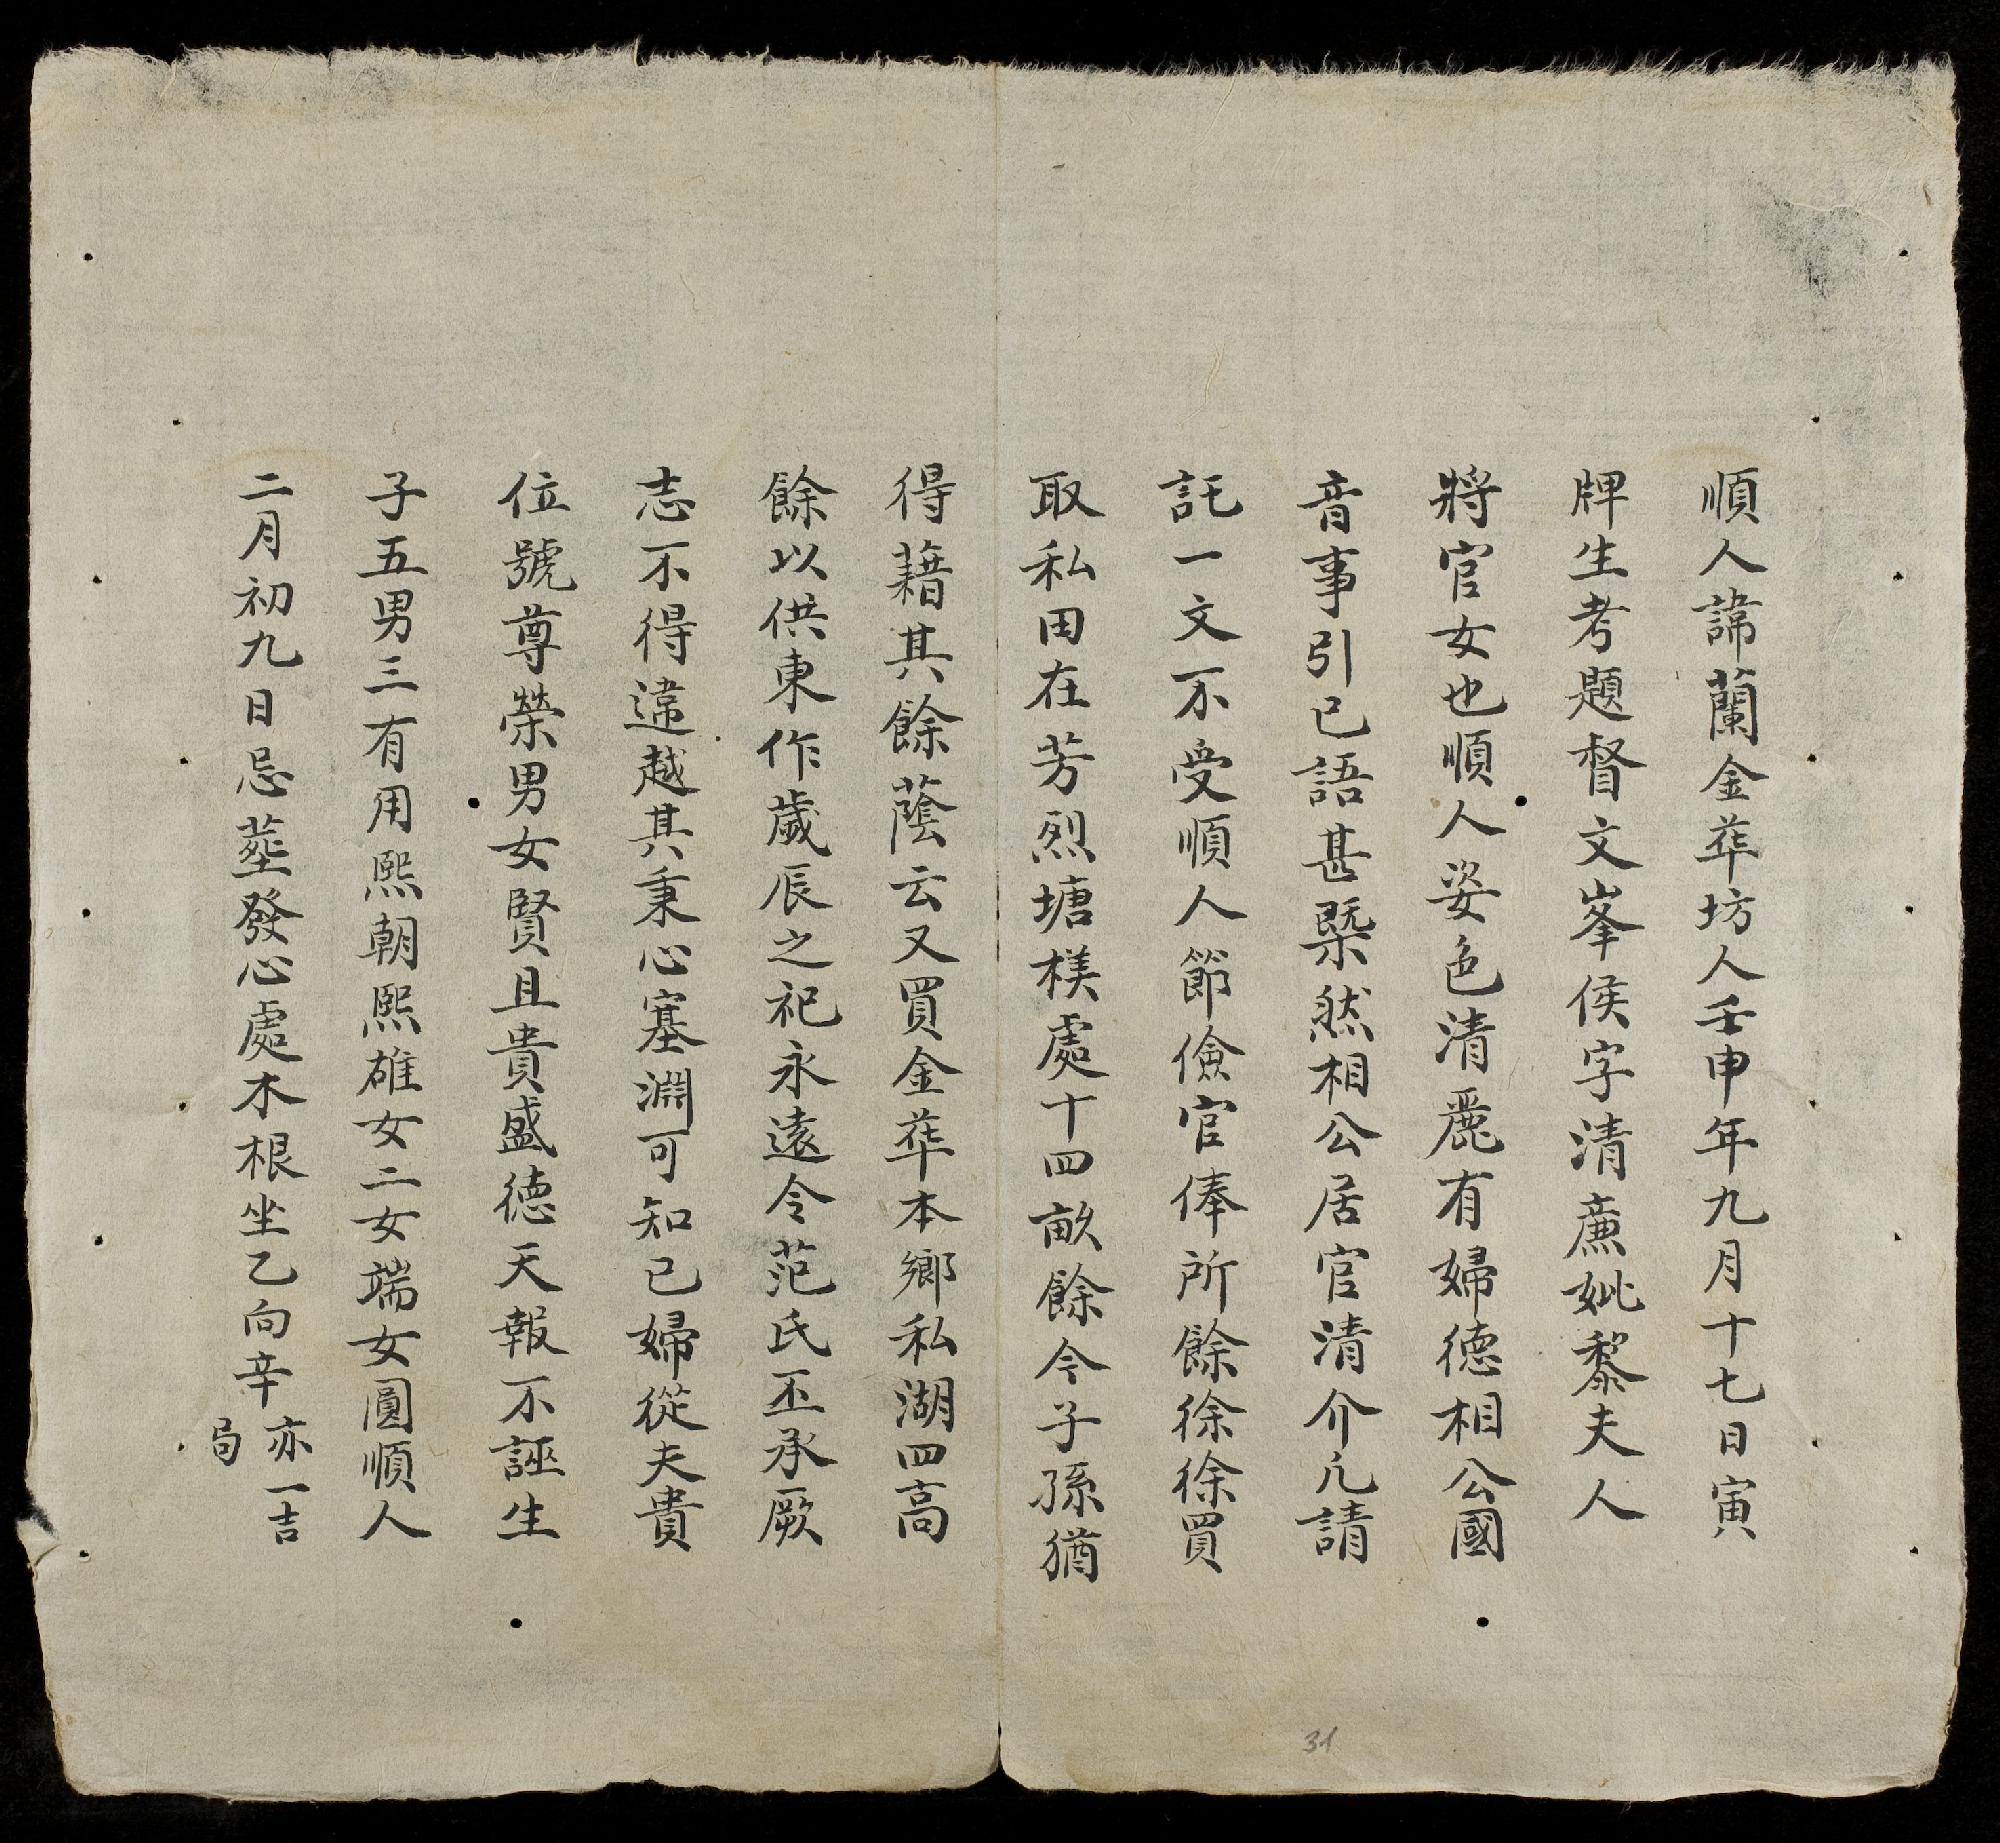 順人諱蘭金華坊人壬申年九月十七日寅
牌生考題督文峯侯字清㢘妣黎夫人
將官女也順人姿色清麗有婦德相公國
音事引已語甚槩然相公居官清介凢請
託一文不受順人節儉官俸所餘徐徐買
取私田在芳烈塘模處十四畝餘今子孫猶
得藉其餘蔭云又買金華本鄉私湖四高
餘以供東作歲辰之祀永遠令范氏丕承厥
志不得違越其秉心塞淵可知已婦從夫貴
位號尊榮男女賢且貴盛德天報不誣生
子五男三有用熙朝熙雄女二女端女圓順人
二月初九日忌塟發心處木根坐乙向辛亦一吉
局
31